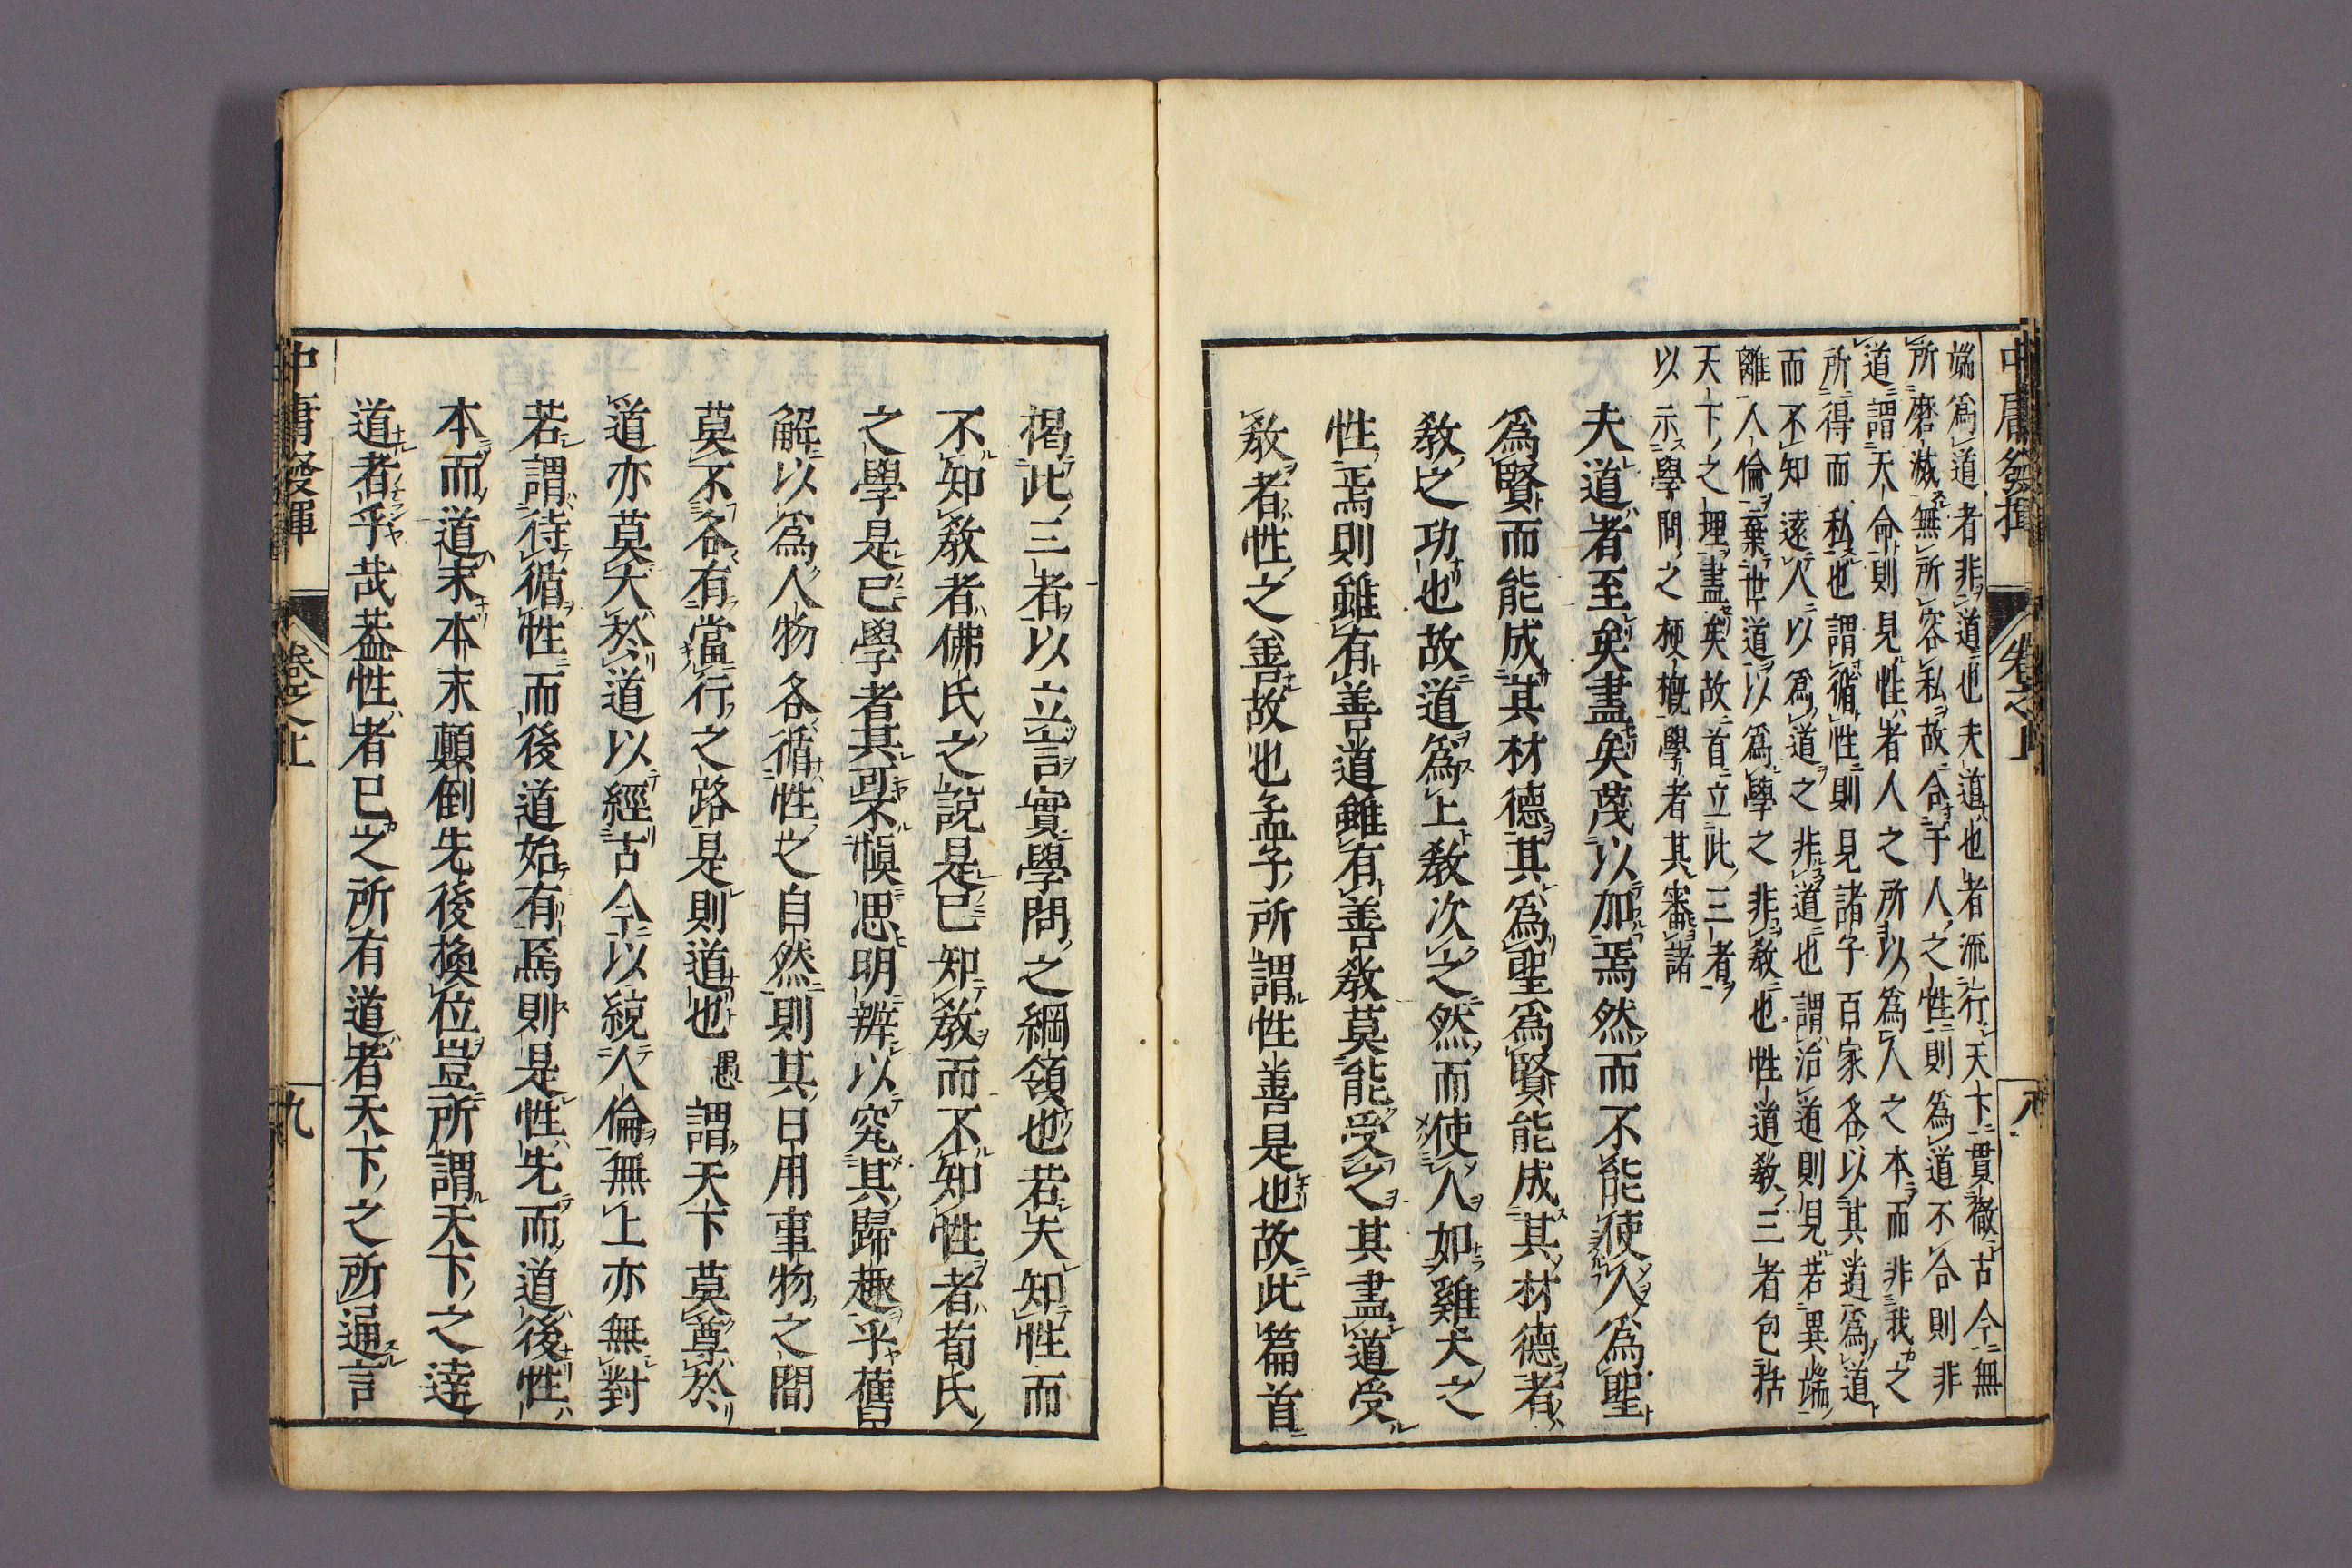 中庸發揮
卷之上
八
端爲道者非道也夫道也者流行天下貫徹古今無
所磨滅無所容私故合于人之性則爲道不合則非
道謂天命則見性者人之所以爲人之本而非我之
所得而私也謂循性則見諸子百家各以其道爲道
而不知遠人以爲道之非道也謂治道則見若異端
離人倫棄世道以爲學之非教也性道教三者包括
天下之理盡矣故首立此三者
以示學問之梗槪學者其審諸
夫道者至矣盡矣蔑以加焉然而不能使人爲聖
爲賢而能成其材德其爲聖爲賢能成其材德者
敎之功也故道爲上敎次之然而使人如雞犬之
性焉則雖有善道雖有善敎莫能受之其盡道受
敎者性之善故也孟子所謂性善是也故此篇首
揭此三者以立言實學問之綱領也若夫知性而
不知敎者佛氏之說是已知敎而不知性者荀氏
之學是已學者其可不愼思明辨以究其歸趣乎舊
解以爲人物各循性之自然則其日用事物之間
莫不各有當行之路是則道也愚謂天下莫尊於
道亦莫大於道以經古今以統人倫無上亦無對
若謂待循性而後道始有焉則是性先而道後性
本而道末本末顚倒先後換位豈所謂天下之達
道者乎哉蓋性者己之所有道者天下之所通言
中庸發揮
卷之上
九